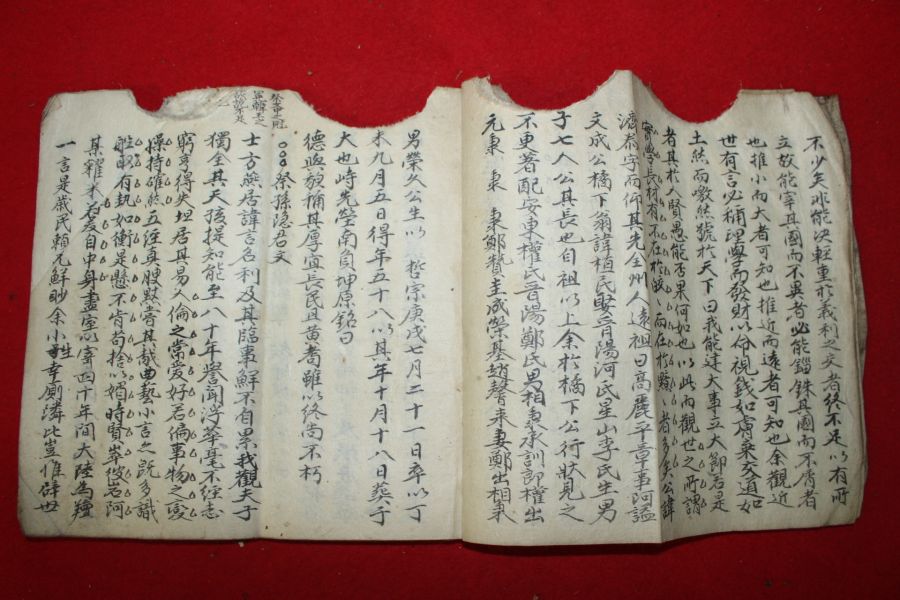 不少矣非能决輕重於義利之交者終不足以有所
立故能宰其國而不爽者必能錙銖其國而不屑者
也推小而大者可知也推近而遠者可知也余觀近
世有言必稱理學而發財以俗視錢如膚棄交道如
土然而噭然號於天下曰我能建大事立大節若是
者其於人賢愚能否果何如也以此內觀世之所謂
長材有不在於皎皎而在於黯黯者多矣公諱
濟泰字而仰其先全州人遠祖曰高麗平章事阿謚
文成公橘下翁諱植民娶晋陽河氏星山李氏生男
子七人公其長也自祖以上余於橘下公行狀見之
不更著配安東權氏晋陽鄭氏男相秉承訓郎權出
元秉 秉 秉鄭贊圭成榮基趙聲来妻鄭出相秉
男榮久公生以 哲宗庚戌七月二十一日卒以丁
未九月五日得年五十八以其年十月十八日葬于
大也峙先塋南負坤原銘曰
德與貌稱其厚宜長民且黃耈雖以終尚不朽
祭孫隐君文
士方燕居諱言名利及其臨事鮮不自累我觀夫子
獨全其天孩提知能至八十年譽聞浮莘毫不經志
窮亨得失坦居其易人倫之常愛好若偏事物之變
操持確於五經真腴㱃嘗其胾曲藝小言之既多識
般取有執如衡是懸不肯苟捨以媚時賢峩彼岩阿
其糴米若爰自中身盡室以寄四十年間大陸為羶
一言是箴民賴兄鮮眇余小姓幸厠隣比豈惟辟世